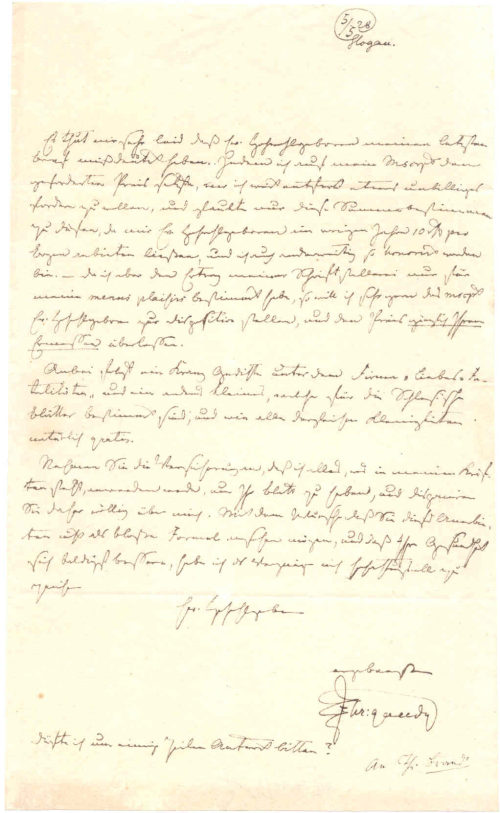 5/5 28
Glogau.
Es thut mir sehr leid daß Ew. Hochwohlgeboren meinen letzten
Brief mißdeutet haben. Indem ich auf mein Mscrpt den
geforderten Preis setzte, war ich weit entfernt etwas unbilliges
fordern zu wollen, und glaubte nur diese Summe bestimmen
zu dürfen, da mir Ew Hochwohlgeboren im vorigen Jahre 10 per
Bogen anbieten ließen, und ich auch anderweitig so honorirt worden
bin. – da ich aber den Ertrag meiner Schriftstellerei nur für
meine menus plaisirs bestimmt habe, so will ich sehr gern das Mscrpt
Ew. Hochwohlgeboren zur disposition stellen, und den Preis ganz Ihrem
Ermessen überlassen.
Anbei folgt ein Kranz Gedichte unter dem Firma
und ein andres kleines, welche für die Schlesische
Blätter bestimmt sind, und wie alle dergleichen Kleinigkeiten
natürlich gratis.
Nehmen Sie die Versicherung an, daß ich alles, was in meinen Kräf-
ten steht, anwenden werde, um Ihr Blatt zu heben, und disponiren
Sie daher völlig über mich. Mit dem Wunsche daß Sie dieses Anerbie-
ten nicht als bloße Formel ansehen mögen, und daß Ihre Gesundheit
sich baldigst bessere, habe ich das Vergnügen mich
zu
Ew. Hochwohlgeb
ergebenster
dürfte ich um einige Zeilen Antwort bitten?
An Th. Brand